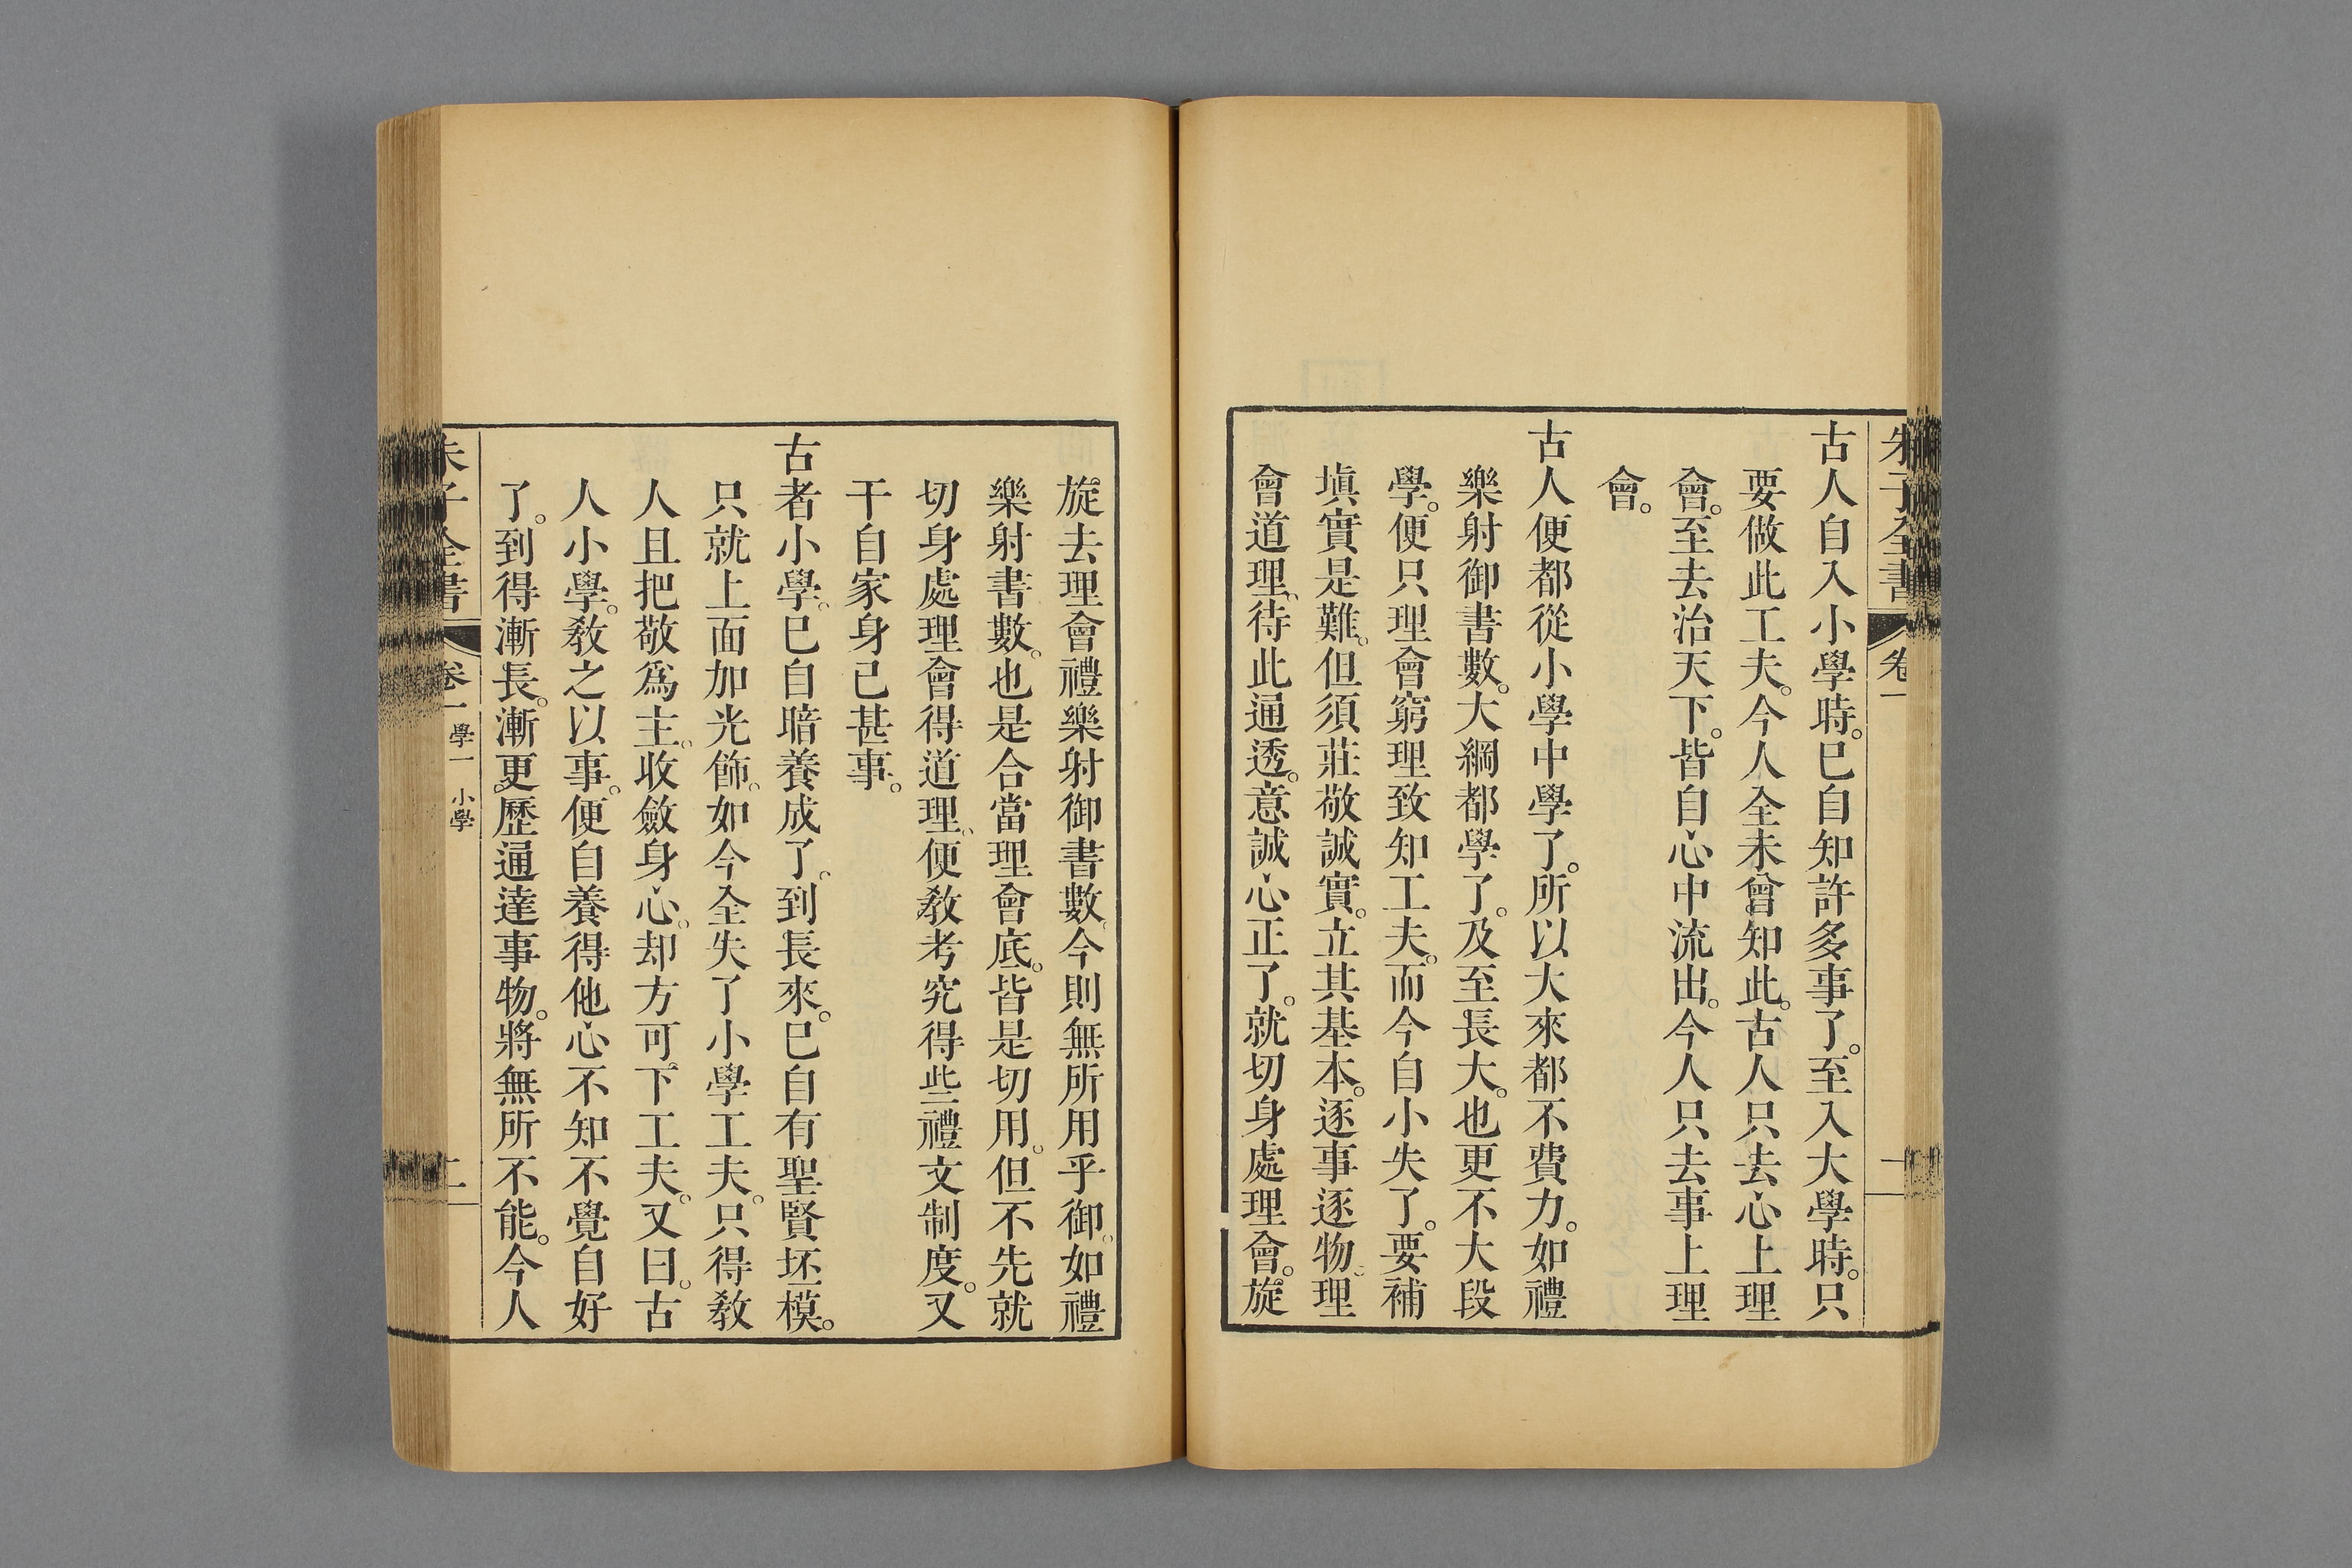 朱子全書 卷一
古人自入小學時。已自知許多事了。至入大學時。只
要做此工夫。今人全未曾知此。古人只去心上理
會。至去治天下。皆自心中流出。今人只去事上理
會。
古人便都從小學中學了。所以大來都不費力。如禮
樂射御書數。大綱都學了。及至長大。也更不大段
學。便只理會窮理致知工夫。而今自小失了。要補
塡實是難。但須莊敬誠實。立其基本。逐事逐物。理
會道理。待此通透。意誠心正了。就切身處理會。旋
旋去理會禮樂射御書數。今則無所用乎御。如禮
樂射書數。也是合當理會底。皆是切用。但不先就
切身處理會得道理。便敎考究得些禮文制度。又
干自家身己甚事。
古者小學。已自暗養成了。到長來。已自有聖賢坯模。
只就上面加光飾。如今全失了小學工夫。只得敎
人且把敬爲主。收斂身心。却方可下工夫。又曰。古
人小學。敎之以事。便自養得他心。不知不覺自好
了。到得漸長。漸更歷通達事物。將無所不能。今人
朱子全書 卷一 學一 小學 二